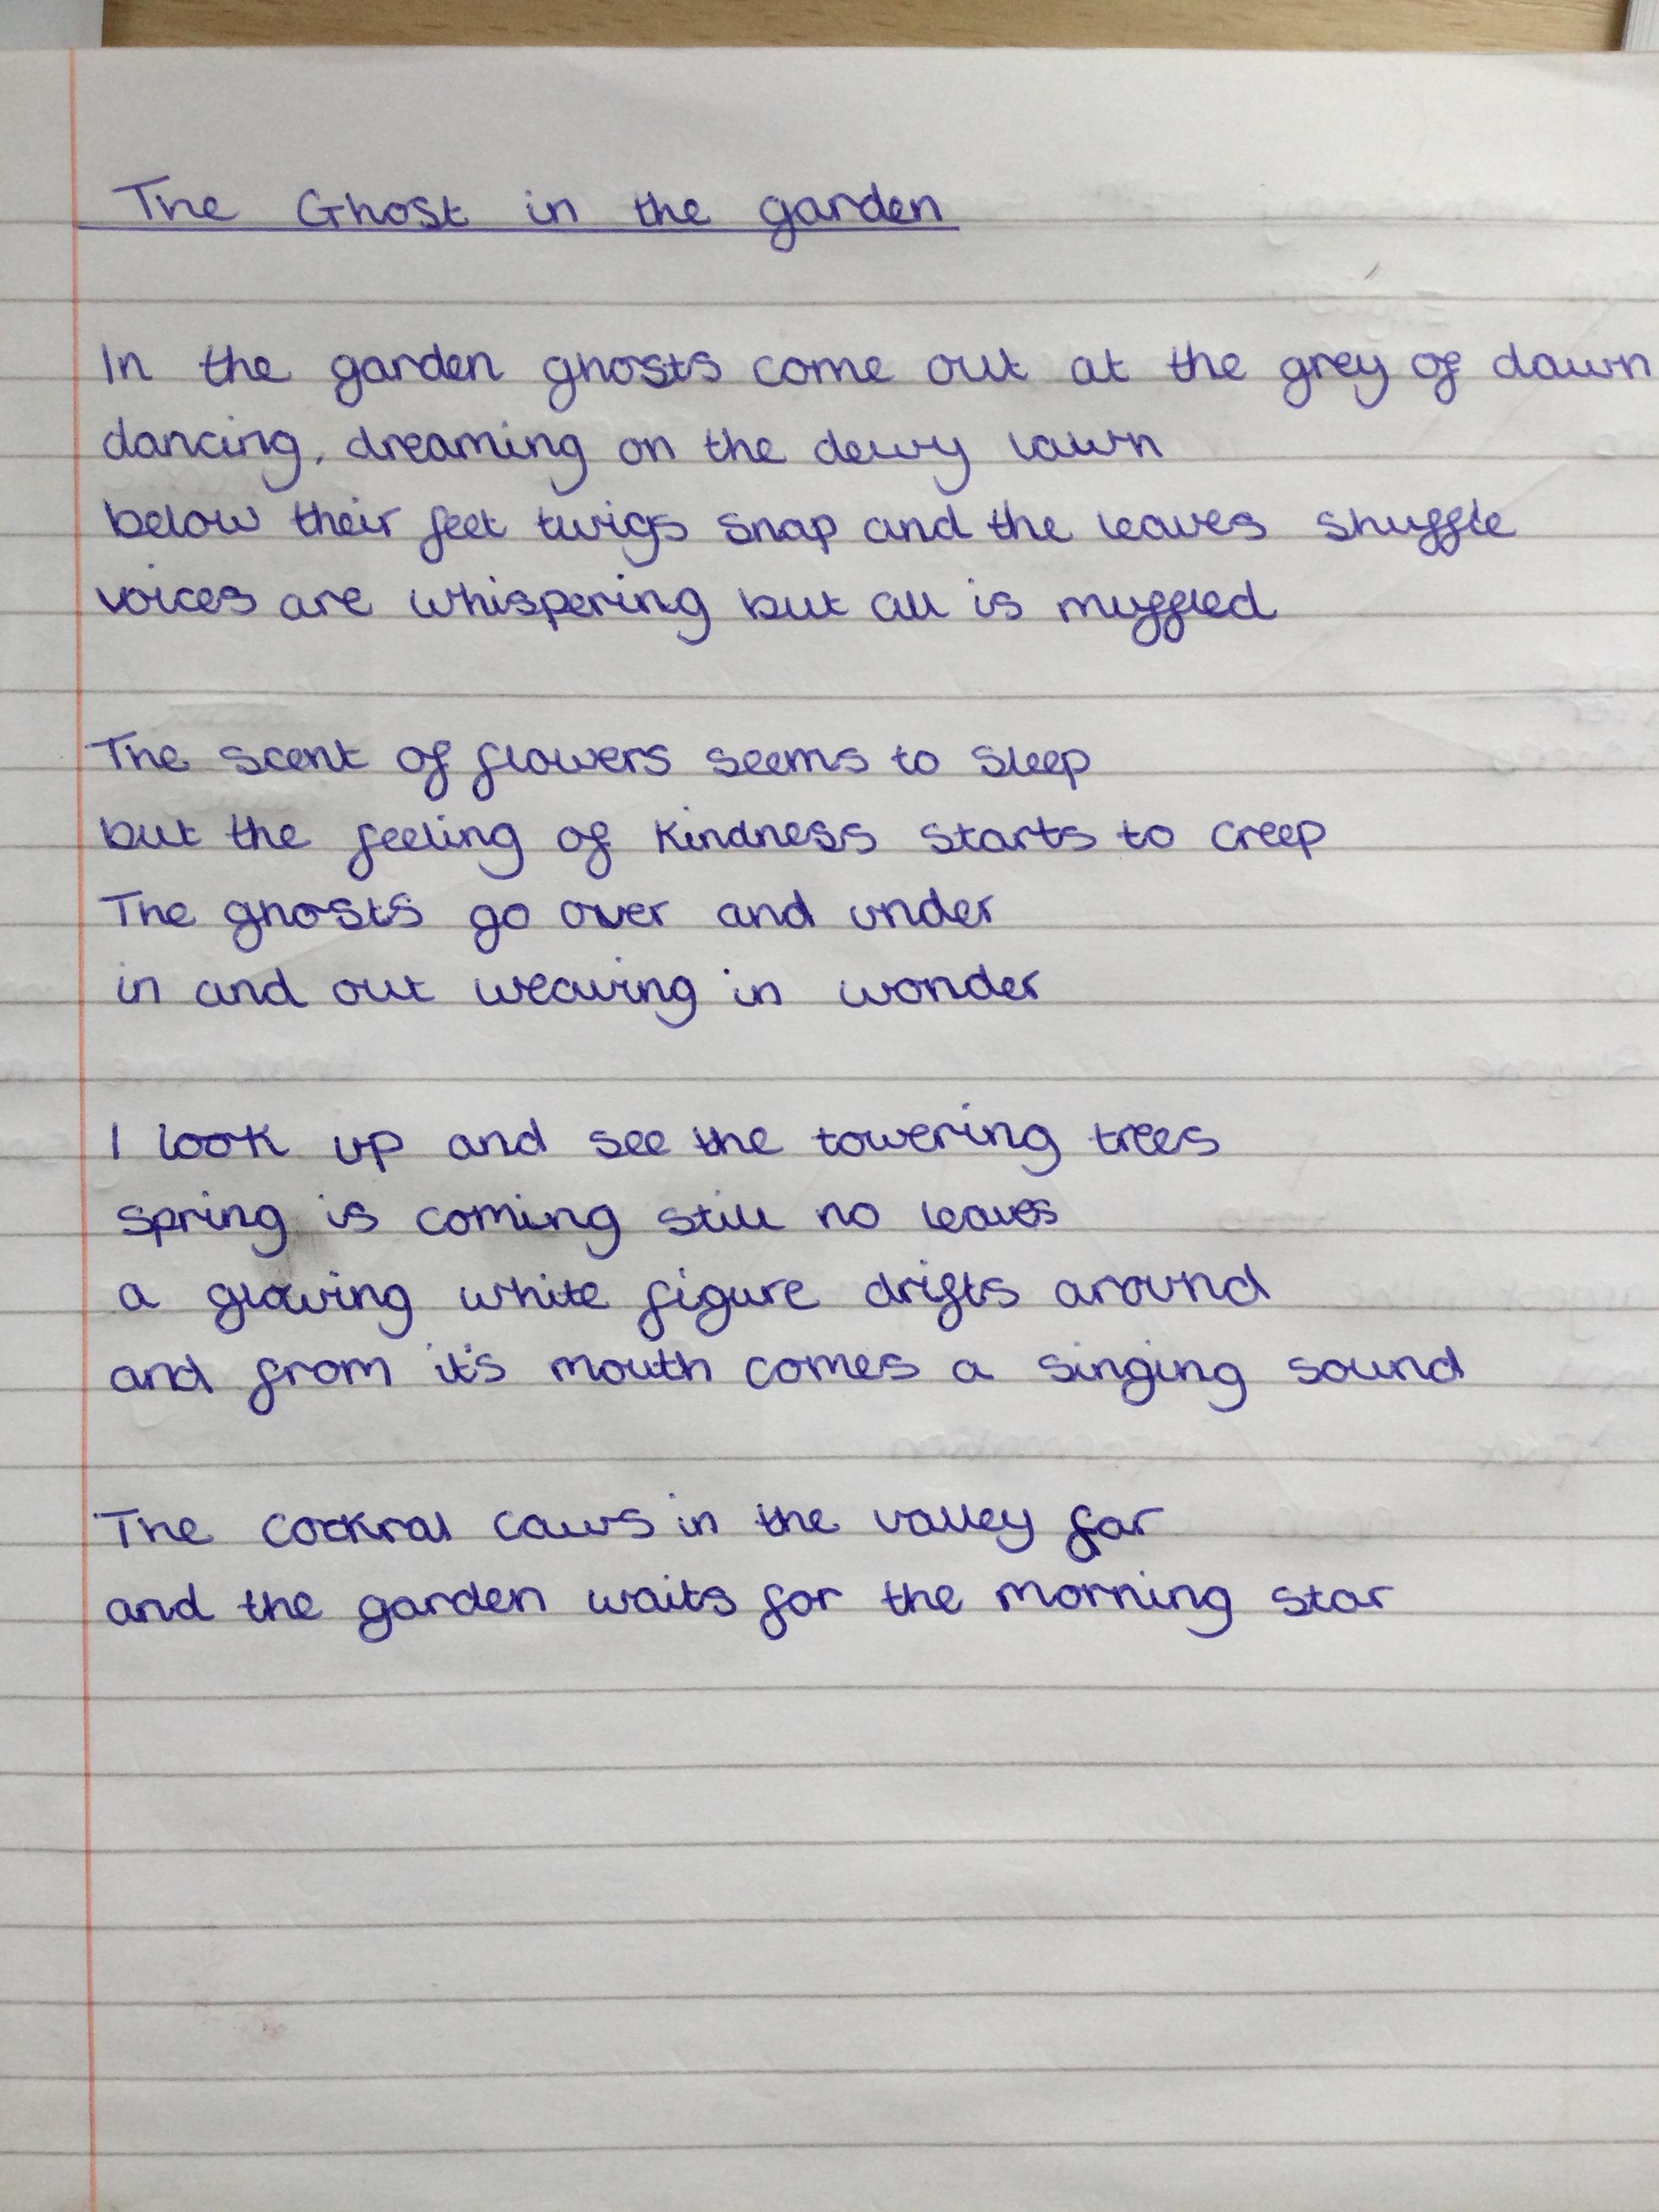 The Ghost in the garden
In the garden ghosts come out at the grey of dawn
dancing, dreaming on the dewy lawn
below their feet twigs snap and the leaves shuffle
voices are whispering but all is muffled
The scent of flowers seems to sleep
but the feeling of kindness starts to creep
The ghosts go over and under
in and out weaving in wonder
I look up and see the towering trees
spring is coming still no leaves
a glowing white figure drifts around
and from it's mouth comes a singing sound
The cockral caws in the valley far
and the garden waits for the morning star